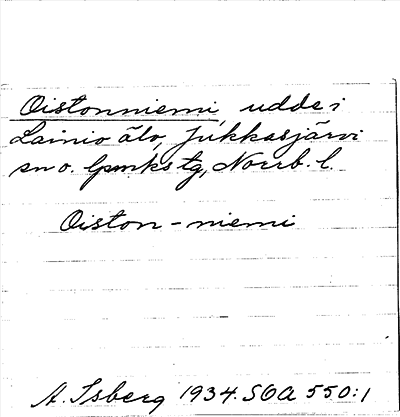 Oistonniemi, udde i
Lainio älv, Jukkasjärvi
sn o. lpmkstg, Norrb. l.
Oiston-niemi
A. Isberg 1934. SOA 550:1